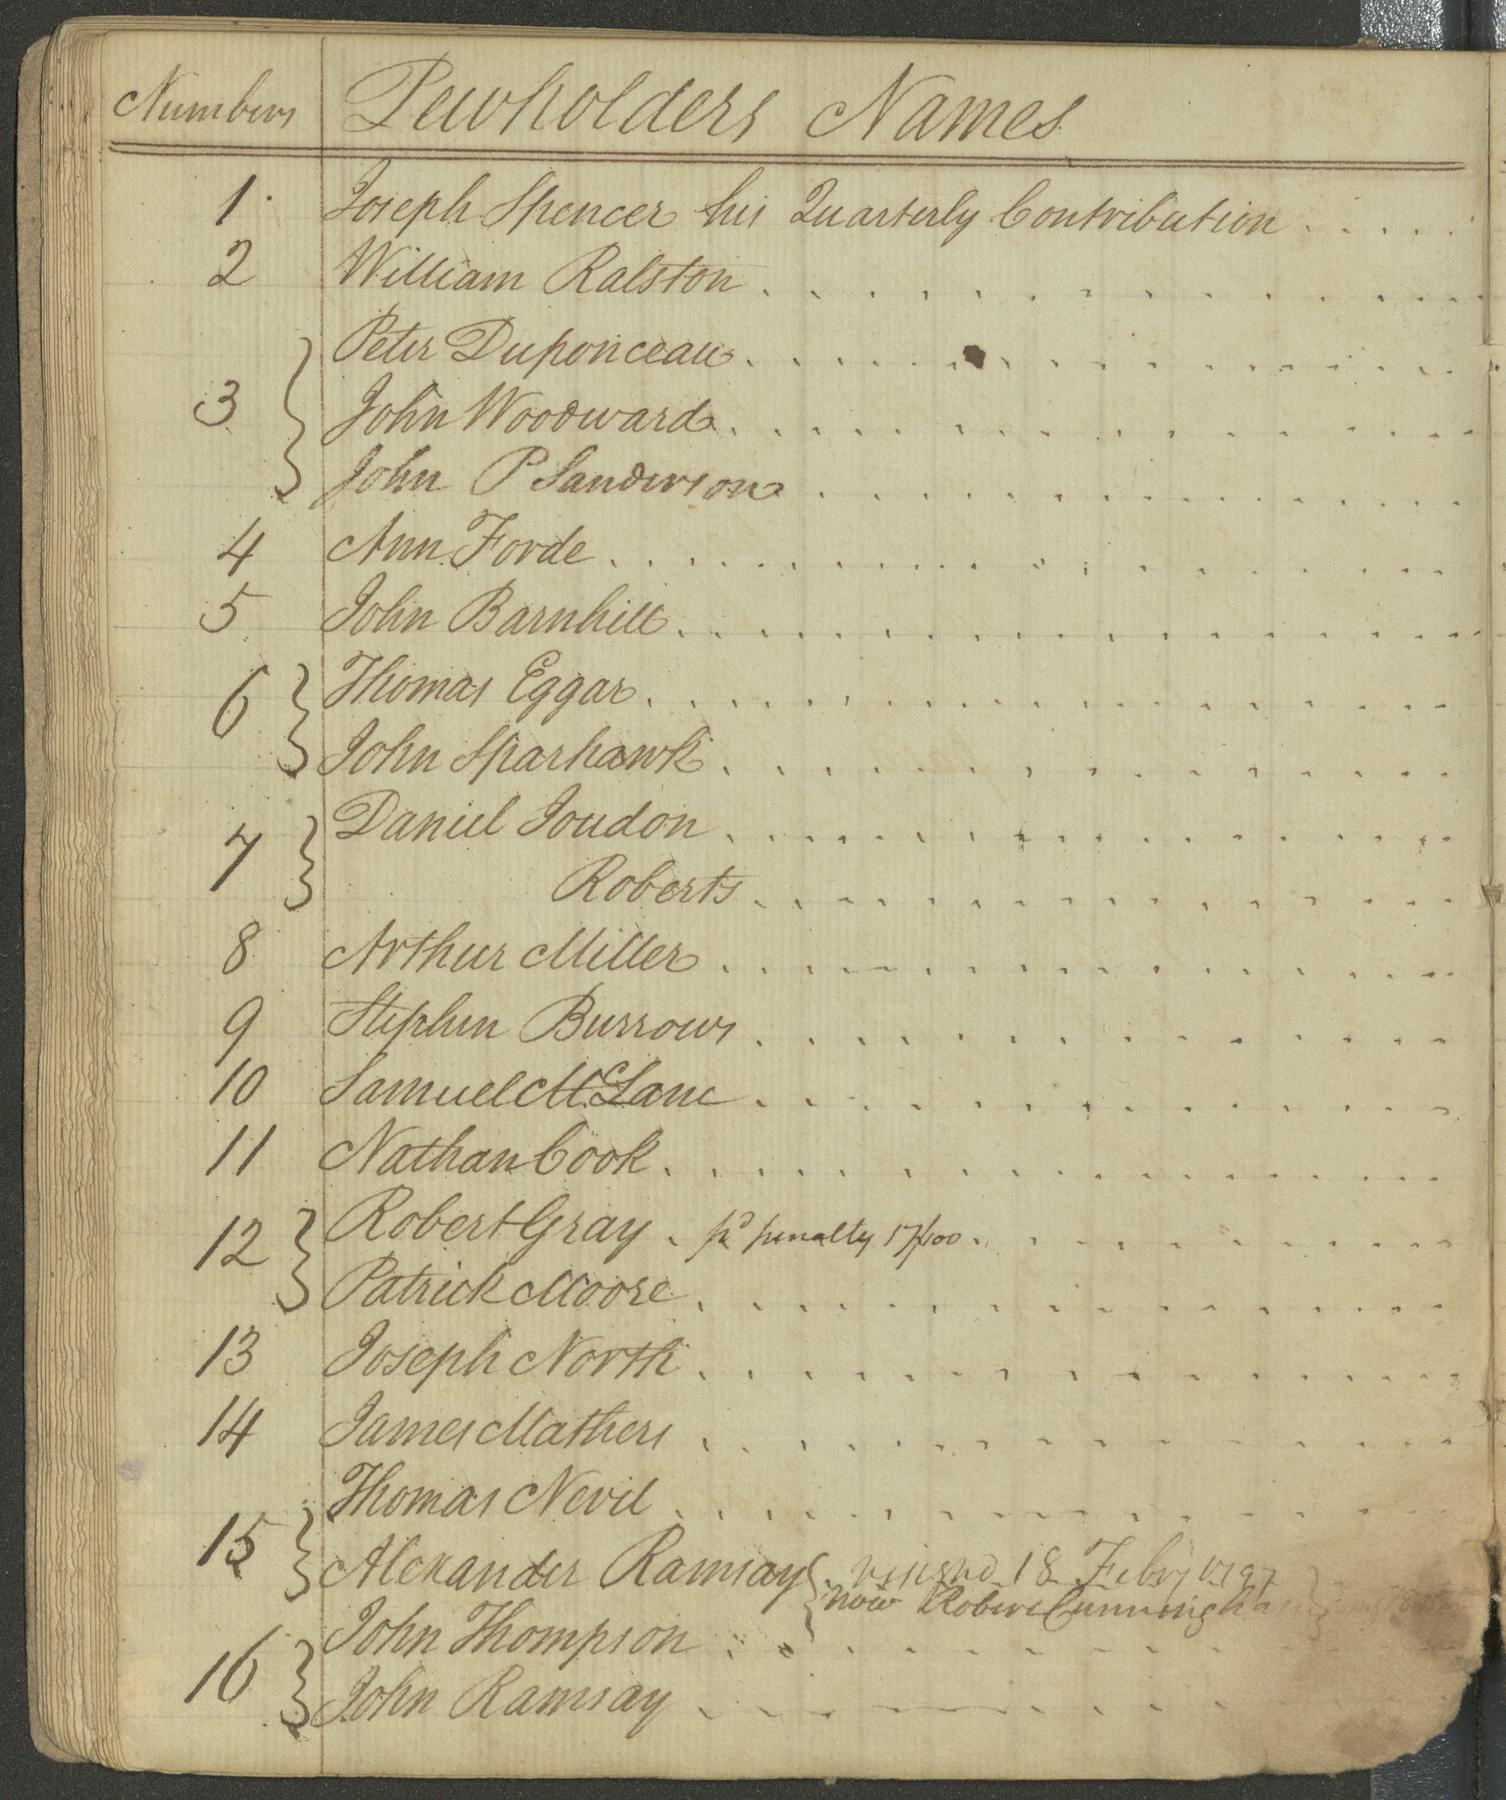 Numbers Pewholders Names
1. Joseph Spencer his Quarterly Contribution . . . . .
2 William Ralston
Peter Duponceau
3 John Woodward
John P Sanderson
4 Ann Forde
5 John Barnhill
6 Thomas Eggar
John Sparhawk
7 Daniel Joudon
Roberts
8 Arthur Miller
9 Stephen Burrows
10 Samuel McLane
11 Nathan Cook
12 Robert Gray . pd penalty 17/100
Patrick Moore
13 Joseph North
14 James Mathers
Thomas Nevil
15 Alexander Ramsay 18 Feby 1797
now Robert Cunningham
John Thompson
16 John Ramsay